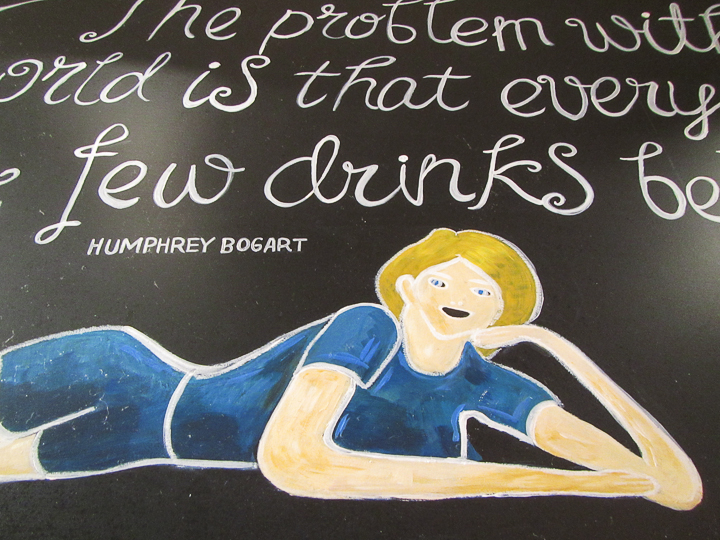 The problem with
orld is that every
few drinks be
HUMPHREY BOGART